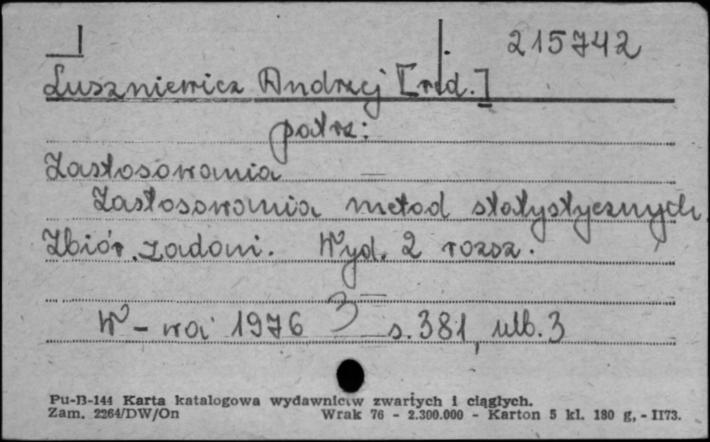 215742
Luszniewicz Andrzej [red.]
patrz:
Zastosowania
Zastosowania metod statystycznych.
Zbiór zadań. Wyd. 2 rozsz.
W-wa 1976 s. 381, ulb. 3
Pu-B-144 Karta katalogowa wydawnictw zwartych i ciągłych.
Zam. 2264/DW/On Wrak 76 - 2.300.000 - Karton 5 kl. 180 g, - II73.